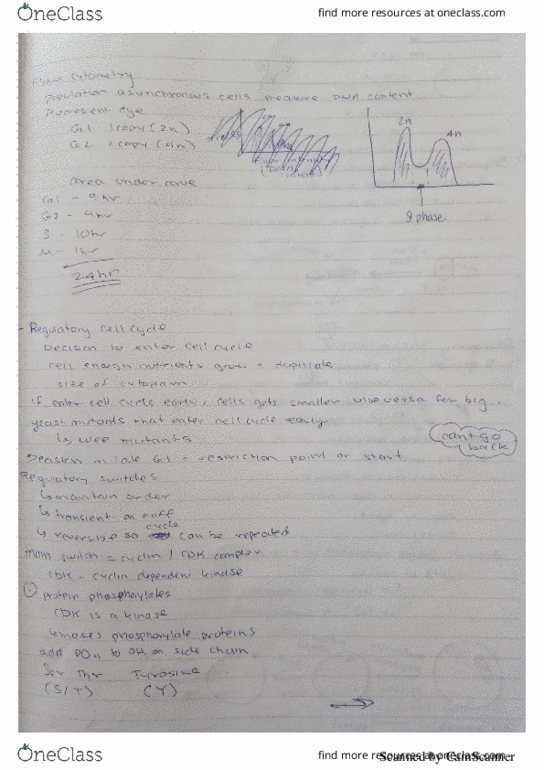 OneClass
find more resources at oneclass.com
Flow cytometry
population asynchronous cells measure DNA content
fluorescent dye
G1 1copy (2n)
G2 2copy (4n)
2n
4n
S phase
Area under curve
G1 - 9hr
G2 - 4hr
S - 10hr
M - 1hr
24hr
- Regulatory cell cycle
Decision to enter cell cycle
cell enough nutrients grow + duplicate
size of cytoplasm
if enter cell cycle early, cells gets smaller for big...
yeast mutants that enter cell cycle early
↳ wee mutants
can't go back
Decision in late G1 = restriction point or start
Regulatory switches
↳ maintain order
↳ transient on + off
↳ reversible so cycle can be repeated
main switch = cyclin / CDK complex
CDK - cyclin dependent kinase
① protein phosphorylates
CDK is a kinase
kinases phosphorylate proteins
add PO4 to OH on side chain
Ser Thr Tyrosine
(S/T) (Y)
OneClass
find more resources at oneclass.com
Scanned by CamScanner